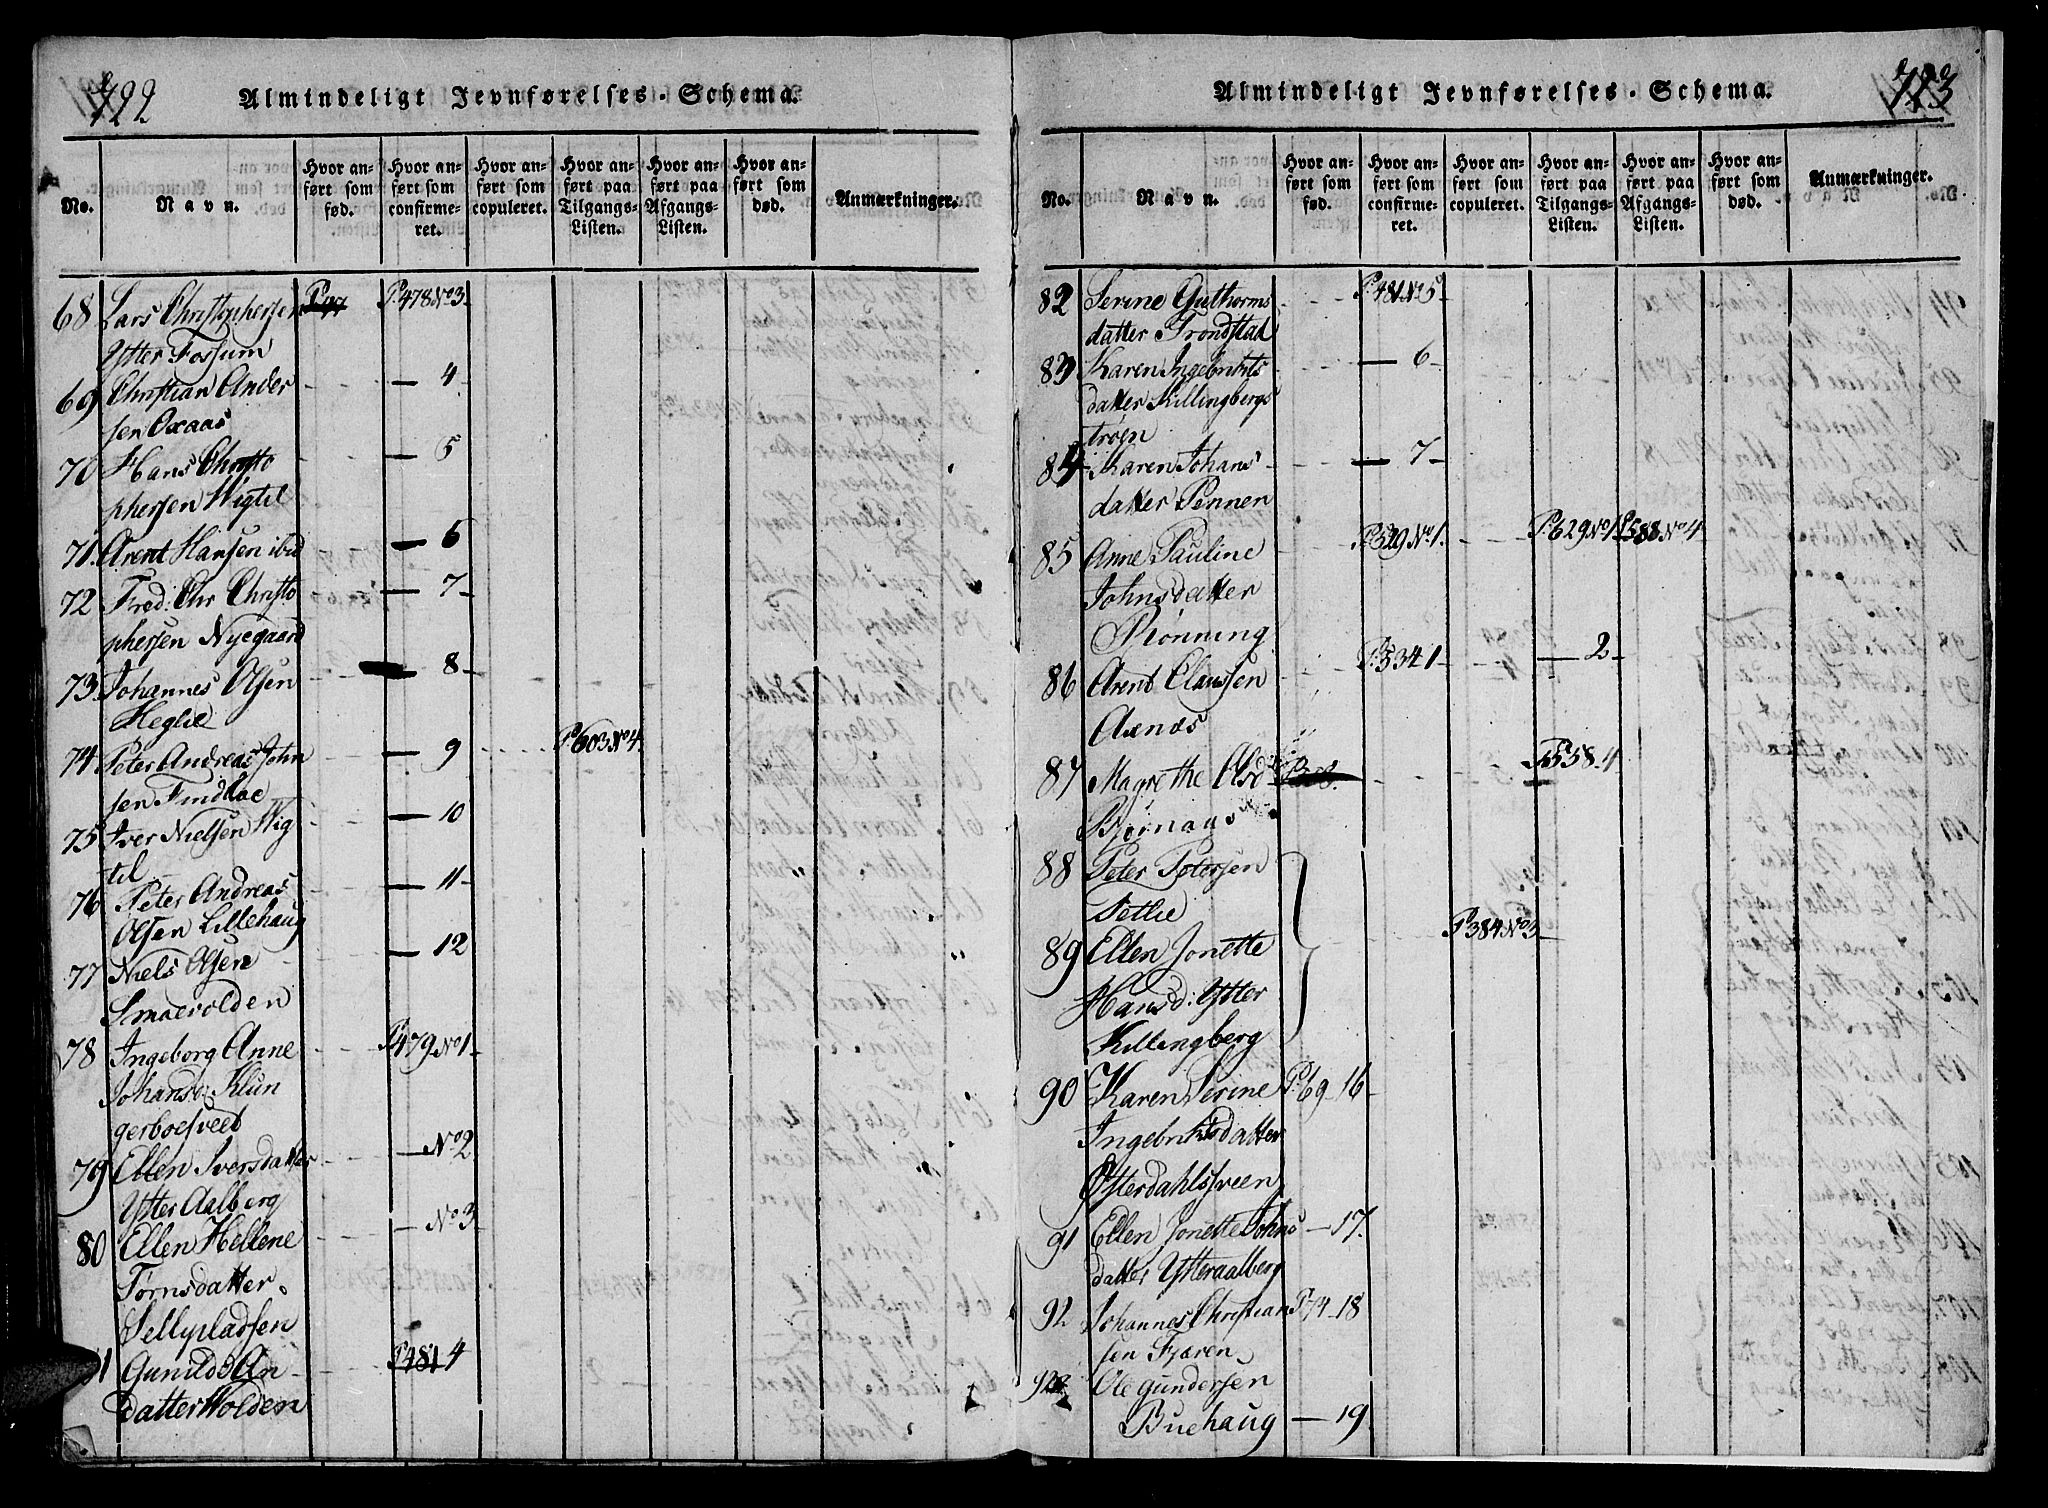 722
Almindeligt Jevnførelses-Schema.
No.
Navn.
Hvor anført som fød.
Hvor anført som confirmeret.
Hvor anført som copuleret.
Hvor anført paa Tilgangs-Listen.
Hvor anført paa Afgangs-Listen.
Hvor anført som død.
Anmærkninger.
68 Lars Christophersen P. 478 No 3
Ytter Fossum
69 Christian Ander — 4
sen Oxaas
70 Hans Christo — 5
phersen Wigtil
71 Arent Hansen ibid — 6
72 Fred: Chr Christo — 7
phersen Nyegaard
73 Johannes Olsen — 8
Heglie
74 Peter Andreas John — 9 P 603 No 4
sen Findloe
75 Iver Nielsen Wig — 10
til
76 Peter Andreas — 11
Olsen Lillehaug
77 Niels Olsen — 12
Smaevolden
78 Ingeborg Anne P. 479 No 1
Johansd: Klun
gerboesveet
79 Ellen Iversdatter — No 2
Ytter Aalberg
80 Ellen Hellene — No 3
Tørnsdatter
Sellypladsen
1 Gunild An P. 481 4
datter Wolden
723
Almindeligt Jevnførelses-Schema.
No.
Navn.
Hvor anført som fød.
Hvor anført som confirmeret.
Hvor anført som copuleret.
Hvor anført paa Tilgangs-Listen.
Hvor anført paa Afgangs-Listen.
Hvor anført som død.
Anmærkninger.
82 Serine Guthorms P. 481 No 5
datter Trondstad
83 Karen Ingebrikts — 6
datter Killingbergs
trøen
84 Karen Johans — 7
datter Pennen
85 Anne Pauline P. 529 No 1. P. 629 No 1 P. 588 No 4
Johnsdatter
Rønning
86 Arent Claussen P. 534 1 — 2
Axnæs
87 Magrethe Olsd 558. 4
Bjørnaas
88 Peter Petersen
Settlie
P. 384 No 3
89 Ellen Jonette
Hansd: Ytter
Killingberg
90 Karen Serine P. 69 16
Ingebriktsdatter
Østerdahlssveen
91 Ellen Jonette Johns — 17.
datter Ytteraalberg
92 Johannes Christian P. 74 18
sen Fjæren
Ole Gundersen
Buehaug — 19